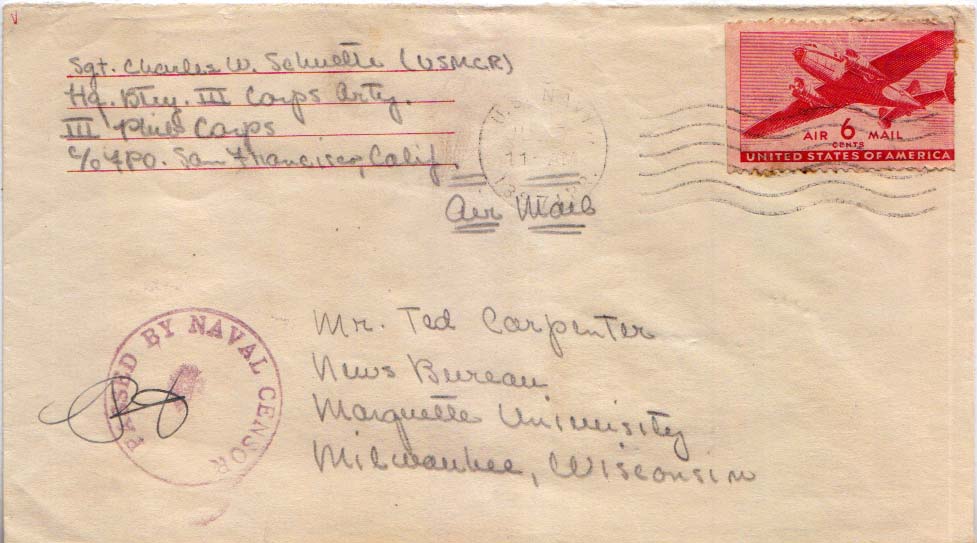 Sgt. Charles W. Schuette (USMCR)
Hq. Btry. III Corps Arty.
III Phib Corps
c/o FPO. San Francisco, Calif.
U.S. NAVY
Air Mail
AIR 6 MAIL
CENTS
UNITED STATES OF AMERICA
PASSED BY NAVAL CENSOR
Mr. Ted Carpenter
News Bureau
Marquette University
Milwaukee, Wisconsin